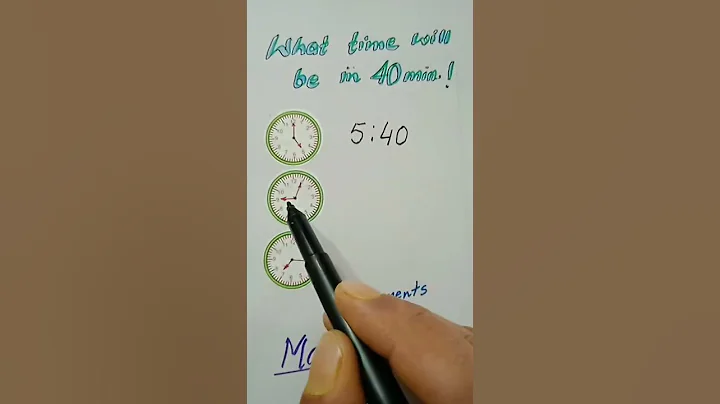 What time will
be in 40 min.!
5:40